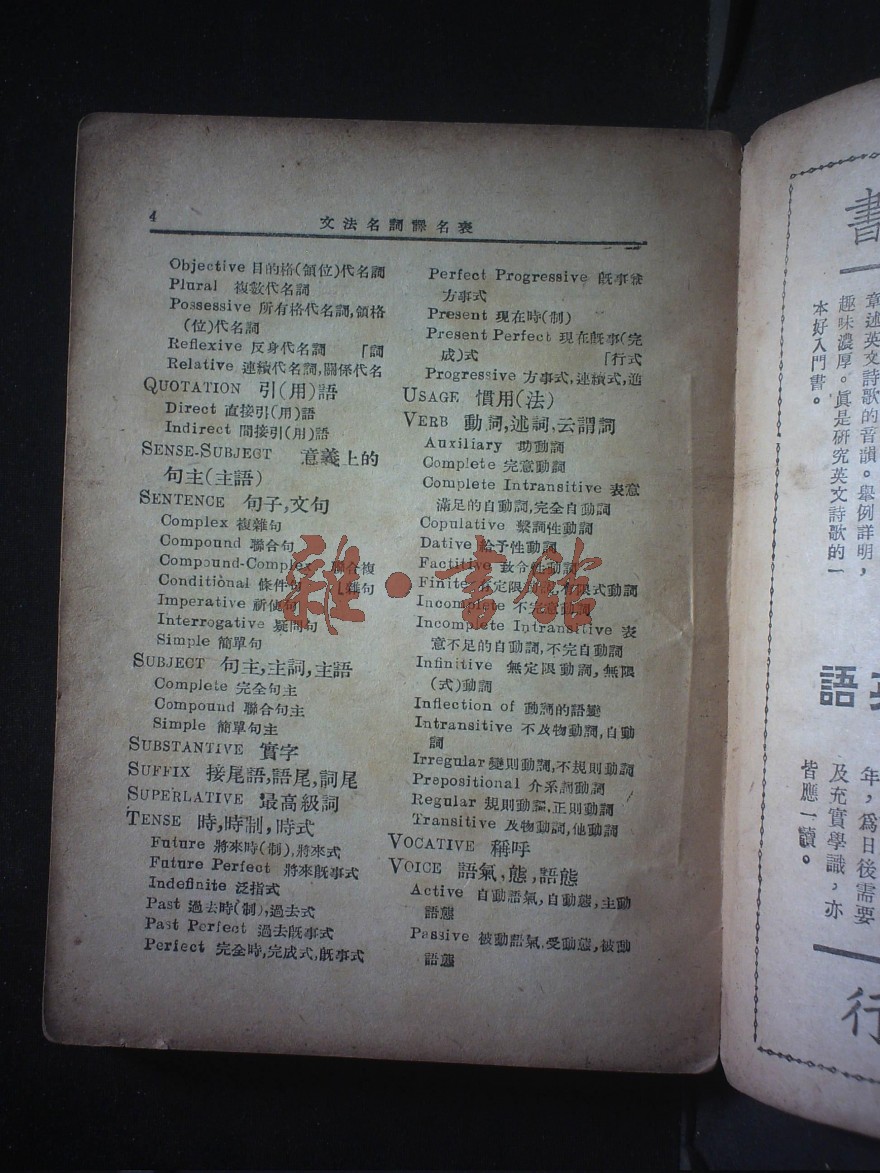 4
文法名詞譯名表
Objective 目的格(領位)代名詞
Plural 複數代名詞
Possessive 所有格代名詞,領格
(位)代名詞
Reflexive 反身代名詞 「詞
Relative 連續代名詞,關係代名
QUOTATION 引(用)語
Direct 直接引(用)語
Indirect 間接引(用)語
SENSE-SUBJECT 意義上的
句主(主語)
SENTENCE 句子,文句
Complex 複雜句
Compound 聯合句
Compound-Complex 聯合複
Conditional 條件句 〔雜句
Imperative 祈使句
Interrogative 疑問句
Simple 簡單句
SUBJECT 句主,主詞,主語
Complete 完全句主
Compound 聯合句主
Simple 簡單句主
SUBSTANTIVE 實字
SUFFIX 接尾語,語尾,詞尾
SUPERLATIVE 最高級詞
TENSE 時,時制,時式
Future 將來時(制),將來式
Future Perfect 將來旣事式
Indefinite 泛指式
Past 過去時(制),過去式
Past Perfect 過去旣事式
Perfect 完全時,完成式,旣事式
Perfect Progressive 旣事兼
方事式
Present 現在時(制)
Present Perfect 現在旣事(完
成)式 「行式
Progressive 方事式,連續式,進
USAGE 慣用(法)
VERB 動詞,述詞,云謂詞
Auxiliary 助動詞
Complete 完意動詞
Complete Intransitive 表意
滿足的自動詞,完全自動詞
Copulative 繫詞性動詞
Dative 給予性動詞
Factitive 致令性動詞
Finite 有定限動詞,有限式動詞
Incomplete 不完意動詞
Incomplete Intransitive 表
意不足的自動詞,不完自動詞
Infinitive 無定限動詞,無限
(式)動詞
Inflection of 動詞的語變
Intransitive 不及物動詞,自動
詞
Irregular 變則動詞,不規則動詞
Prepositional 介系詞動詞
Regular 規則動詞,正則動詞
Transitive 及物動詞,他動詞
VOCATIVE 稱呼
VOICE 語氣,態,語態
Active 自動語氣,自動態,主動
語態
Passive 被動語氣,受動態,被動
語態
雜·書館
書
章述英文詩歌的音韻。舉例詳明,
趣味濃厚。眞是研究英文詩歌的一
本好入門書。
語
年,爲日後需要
及充實學識,亦
皆應一讀。
行